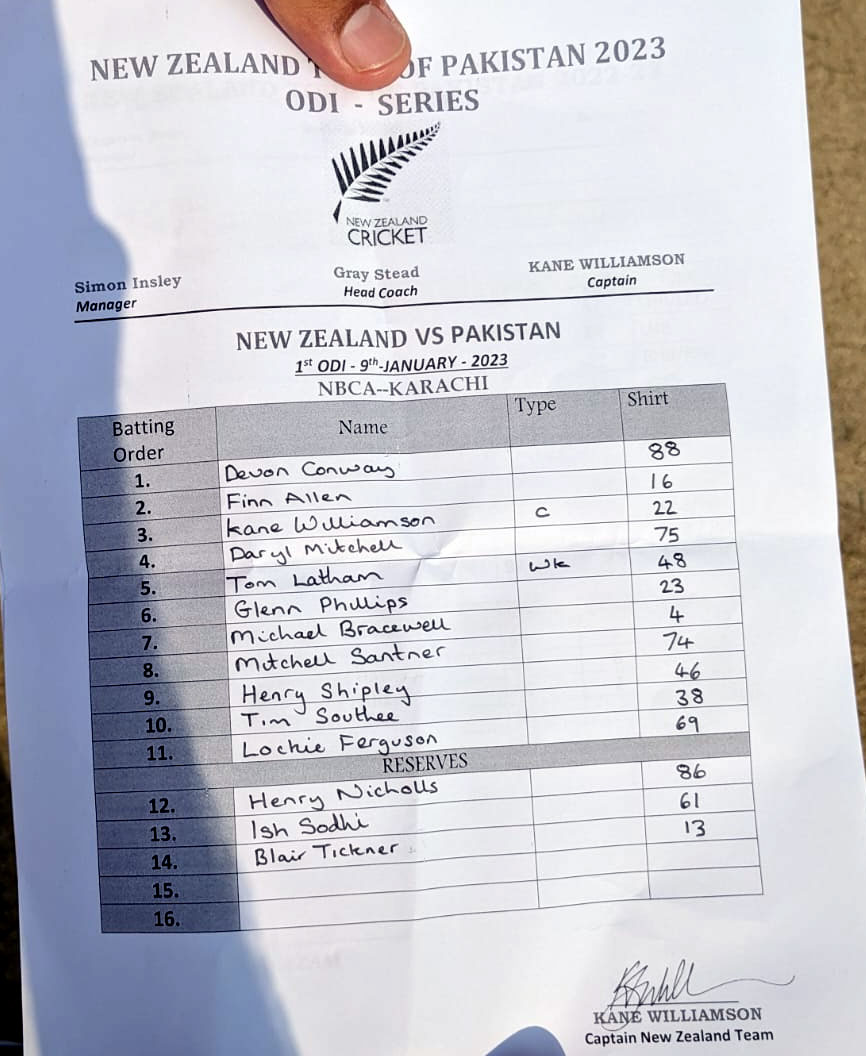 NEW ZEALAND OF PAKISTAN 2023
ODI - SERIES
NEW ZEALAND
CRICKET
Simon Insley
Manager
Gray Stead
Head Coach
KANE WILLIAMSON
Captain
NEW ZEALAND VS PAKISTAN
1st ODI - 9th-JANUARY - 2023
NBCA--KARACHI
Batting Order Name Type Shirt
1. Devon Conway 88
2. Finn Allen 16
3. Kane Williamson C 22
4. Daryl Mitchell 75
5. Tom Latham Wk 48
6. Glenn Phillips 23
7. Michael Bracewell 4
8. Mitchell Santner 74
9. Henry Shipley 46
10. Tim Southee 38
11. Lockie Ferguson 69
RESERVES
12. Henry Nicholls 86
13. Ish Sodhi 61
14. Blair Tickner 13
15.
16.
KANE WILLIAMSON
Captain New Zealand Team